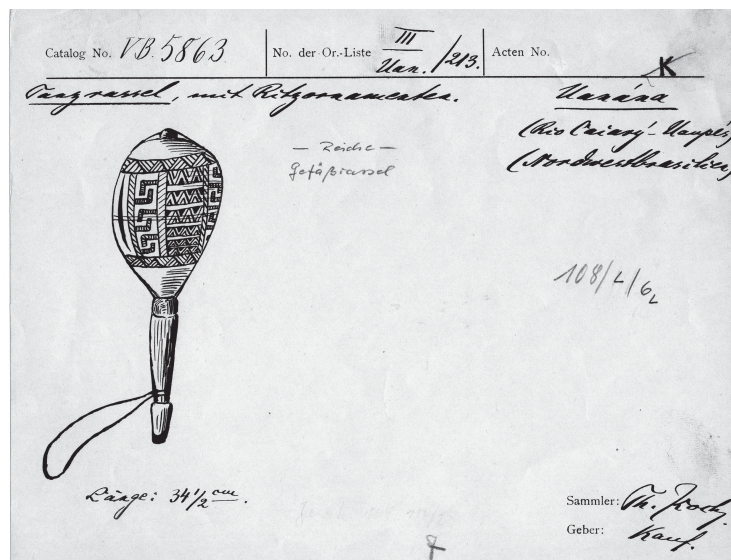 Catalog No. VB. 5863
No. der Or.-Liste III Uan./213.
Acten No.
K
Tanzrassel, mit Ritzornamenten.
Uanána
(Rio Caiarý-Uaupés)
(Nordwestbrasilien)
Gefäßrassel
108/L/6L
Länge: 34 1/2 cm.
Sammler: Th. Koch.
Geber: Kauf.